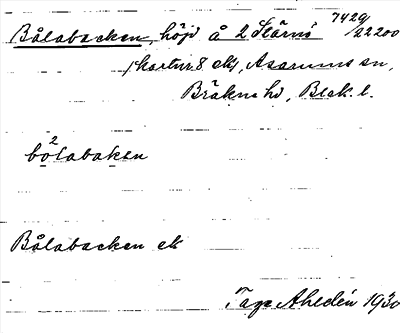 Bålabacken, höjd å 2 Stärnö 7429/22200
(kartur. 8 ek), Asarums sn,
Bräkne hd, Blek. l.
bo2labakan
Bålabacken ek
Tage Ahledén 1930